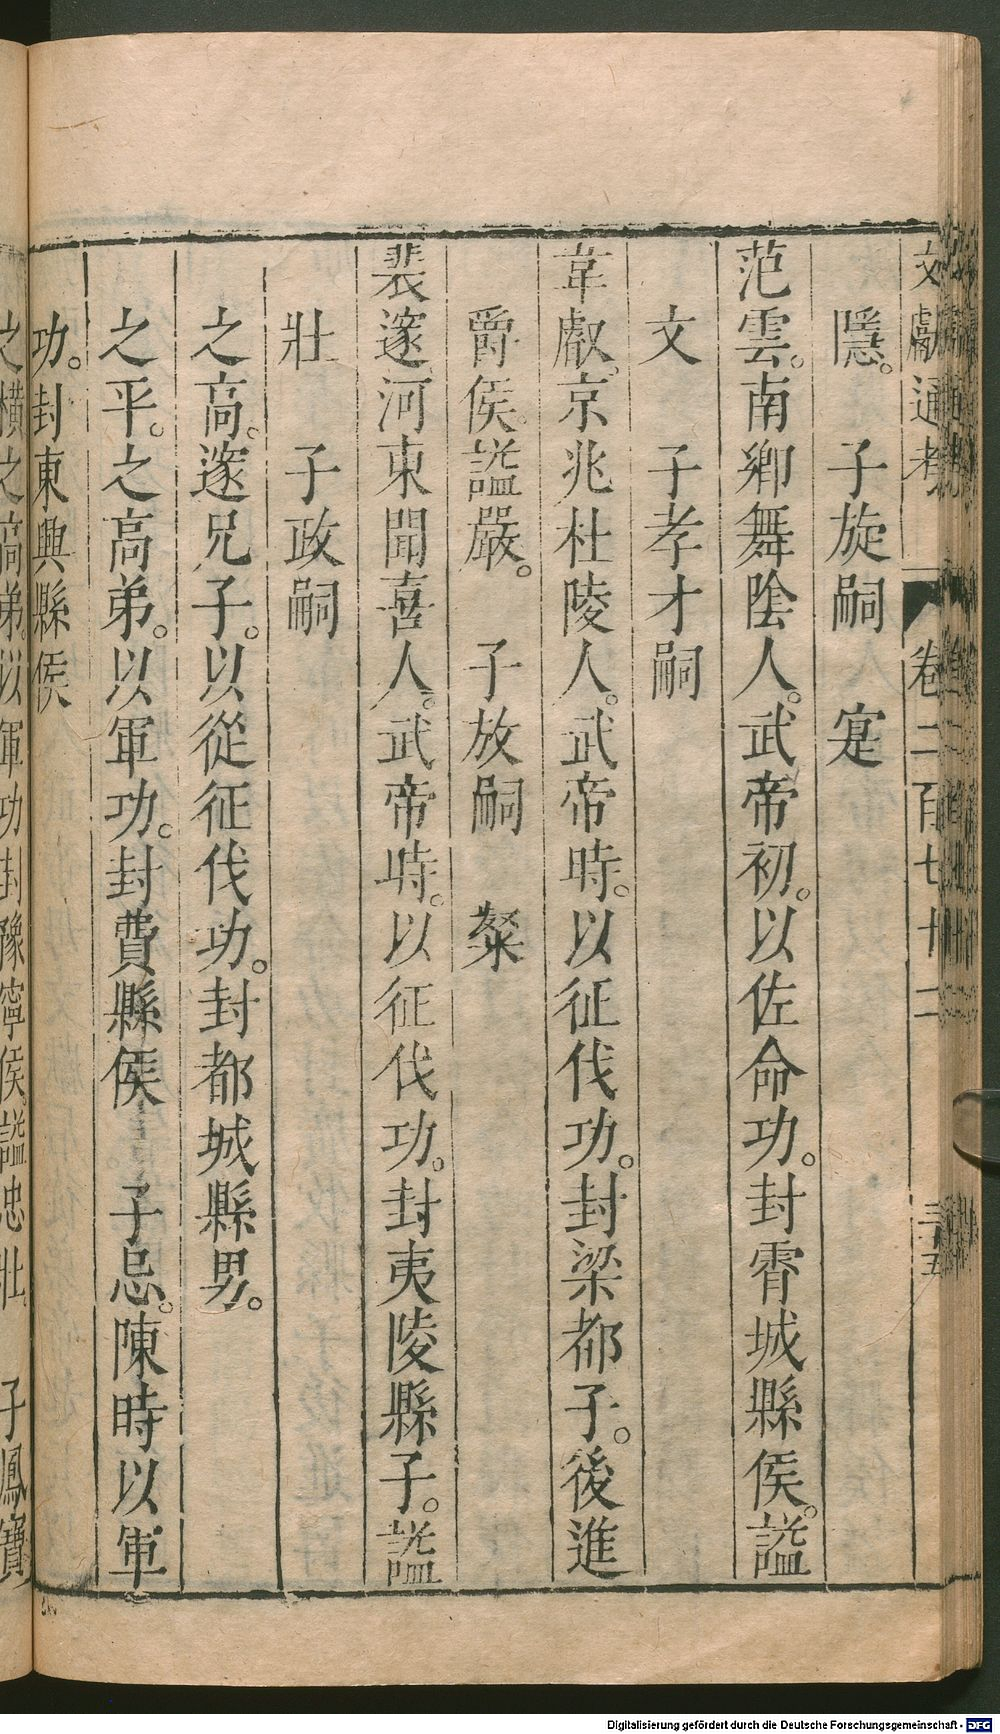 文獻通考 卷二百七十二 三十五
隱。 子旋嗣 寔
范雲。南鄉舞陰人。武帝初。以佐命功。封霄城縣侯。謚
文 子孝才嗣
韋叡。京兆杜陵人。武帝時。以征伐功。封梁都子。後進
爵侯。謚嚴。 子放嗣 粲
裴邃河東聞喜人。武帝時。以征伐功。封夷陵縣子。謚
壯 子政嗣
之高。邃兄子。以從征伐功。封都城縣男。
之平。之高弟。以軍功。封費縣侯 子忌。陳時以軍
功。封東興縣侯
之橫之高弟。以軍功封豫寧侯。謚忠壯。 子鳳寶
Digitalisierung gefördert durch die Deutsche Forschungsgemeinschaft - DFG